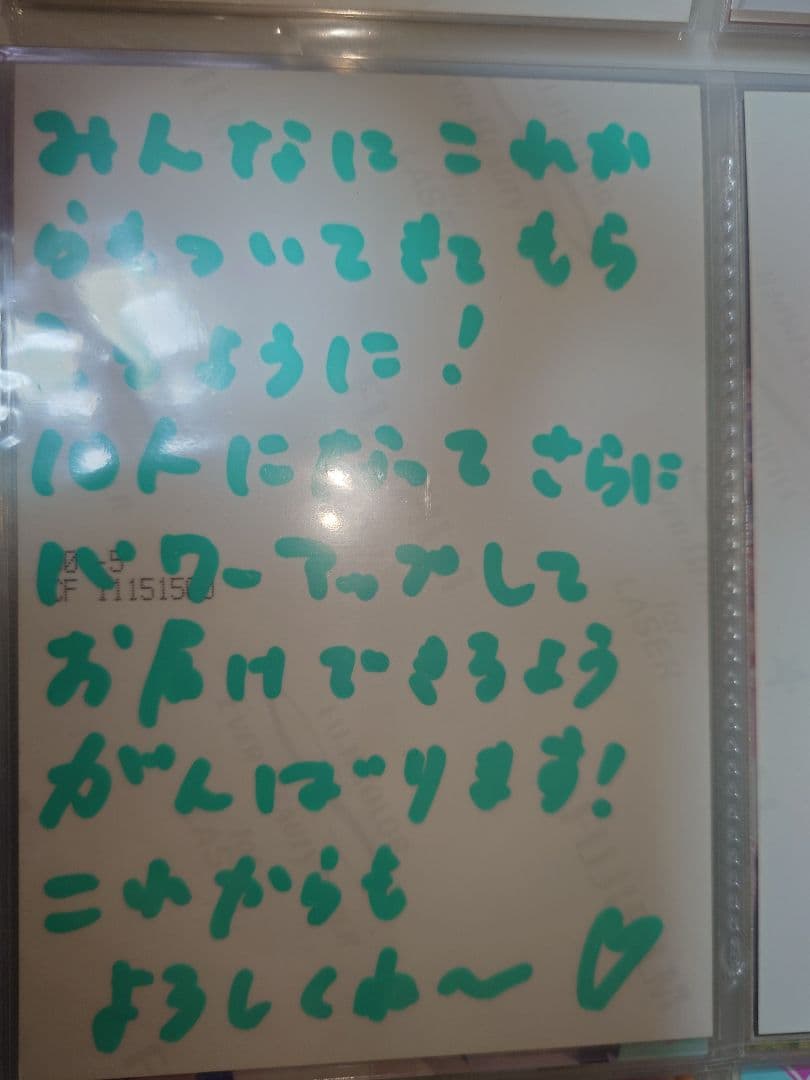 みんなに これか
らもついてきてもら
えるように!
10人になって さらに
パワーアップして
お届けできるよう
がんばります!
これからも
よろしくね〜♡